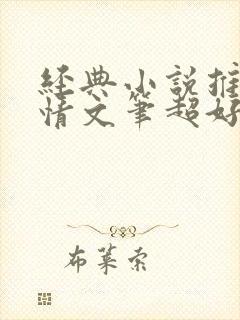 經典小說推
情文筆超好
布萊索